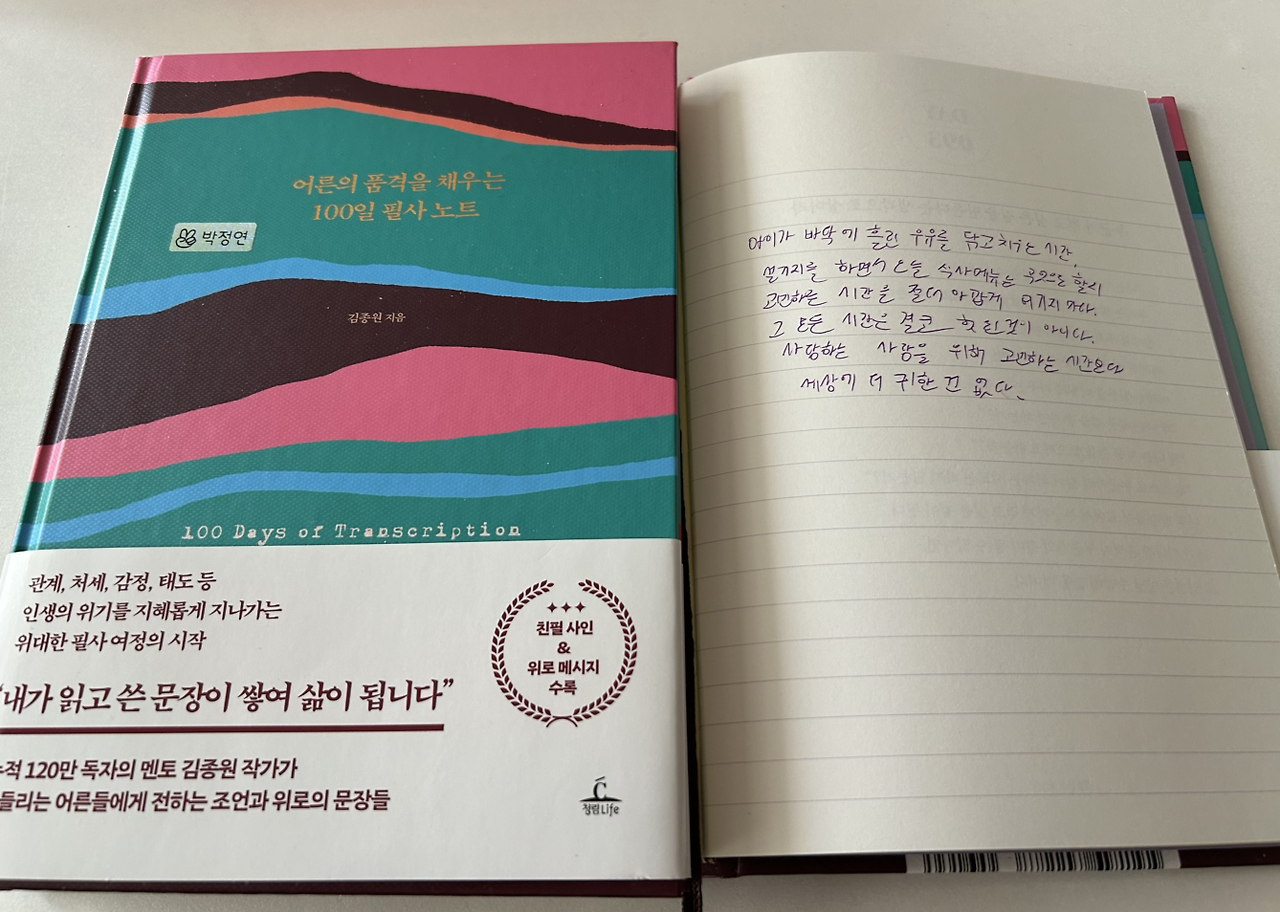 어른의 품격을 채우는
100일 필사 노트
박정연
김종원 지음
100 Days of Transcription
관계, 처세, 감정, 태도 등
인생의 위기를 지혜롭게 지나가는
위대한 필사 여정의 시작
친필 사인
&
위로 메시지
수록
“내가 읽고 쓴 문장이 쌓여 삶이 됩니다”
적 120만 독자의 멘토 김종원 작가가
들리는 어른들에게 전하는 조언과 위로의 문장들
청림Life
아이가 바닥에 흘린 우유를 닦고 치우는 시간,
설거지를 하면서 오늘 식사메뉴는 무엇으로 할지
고민하는 시간을 절대 아깝게 여기지 마라.
그 모든 시간은 결코 헛된 것이 아니다.
사랑하는 사람을 위해 고민하는 시간보다
세상에 더 귀한 건 없다.